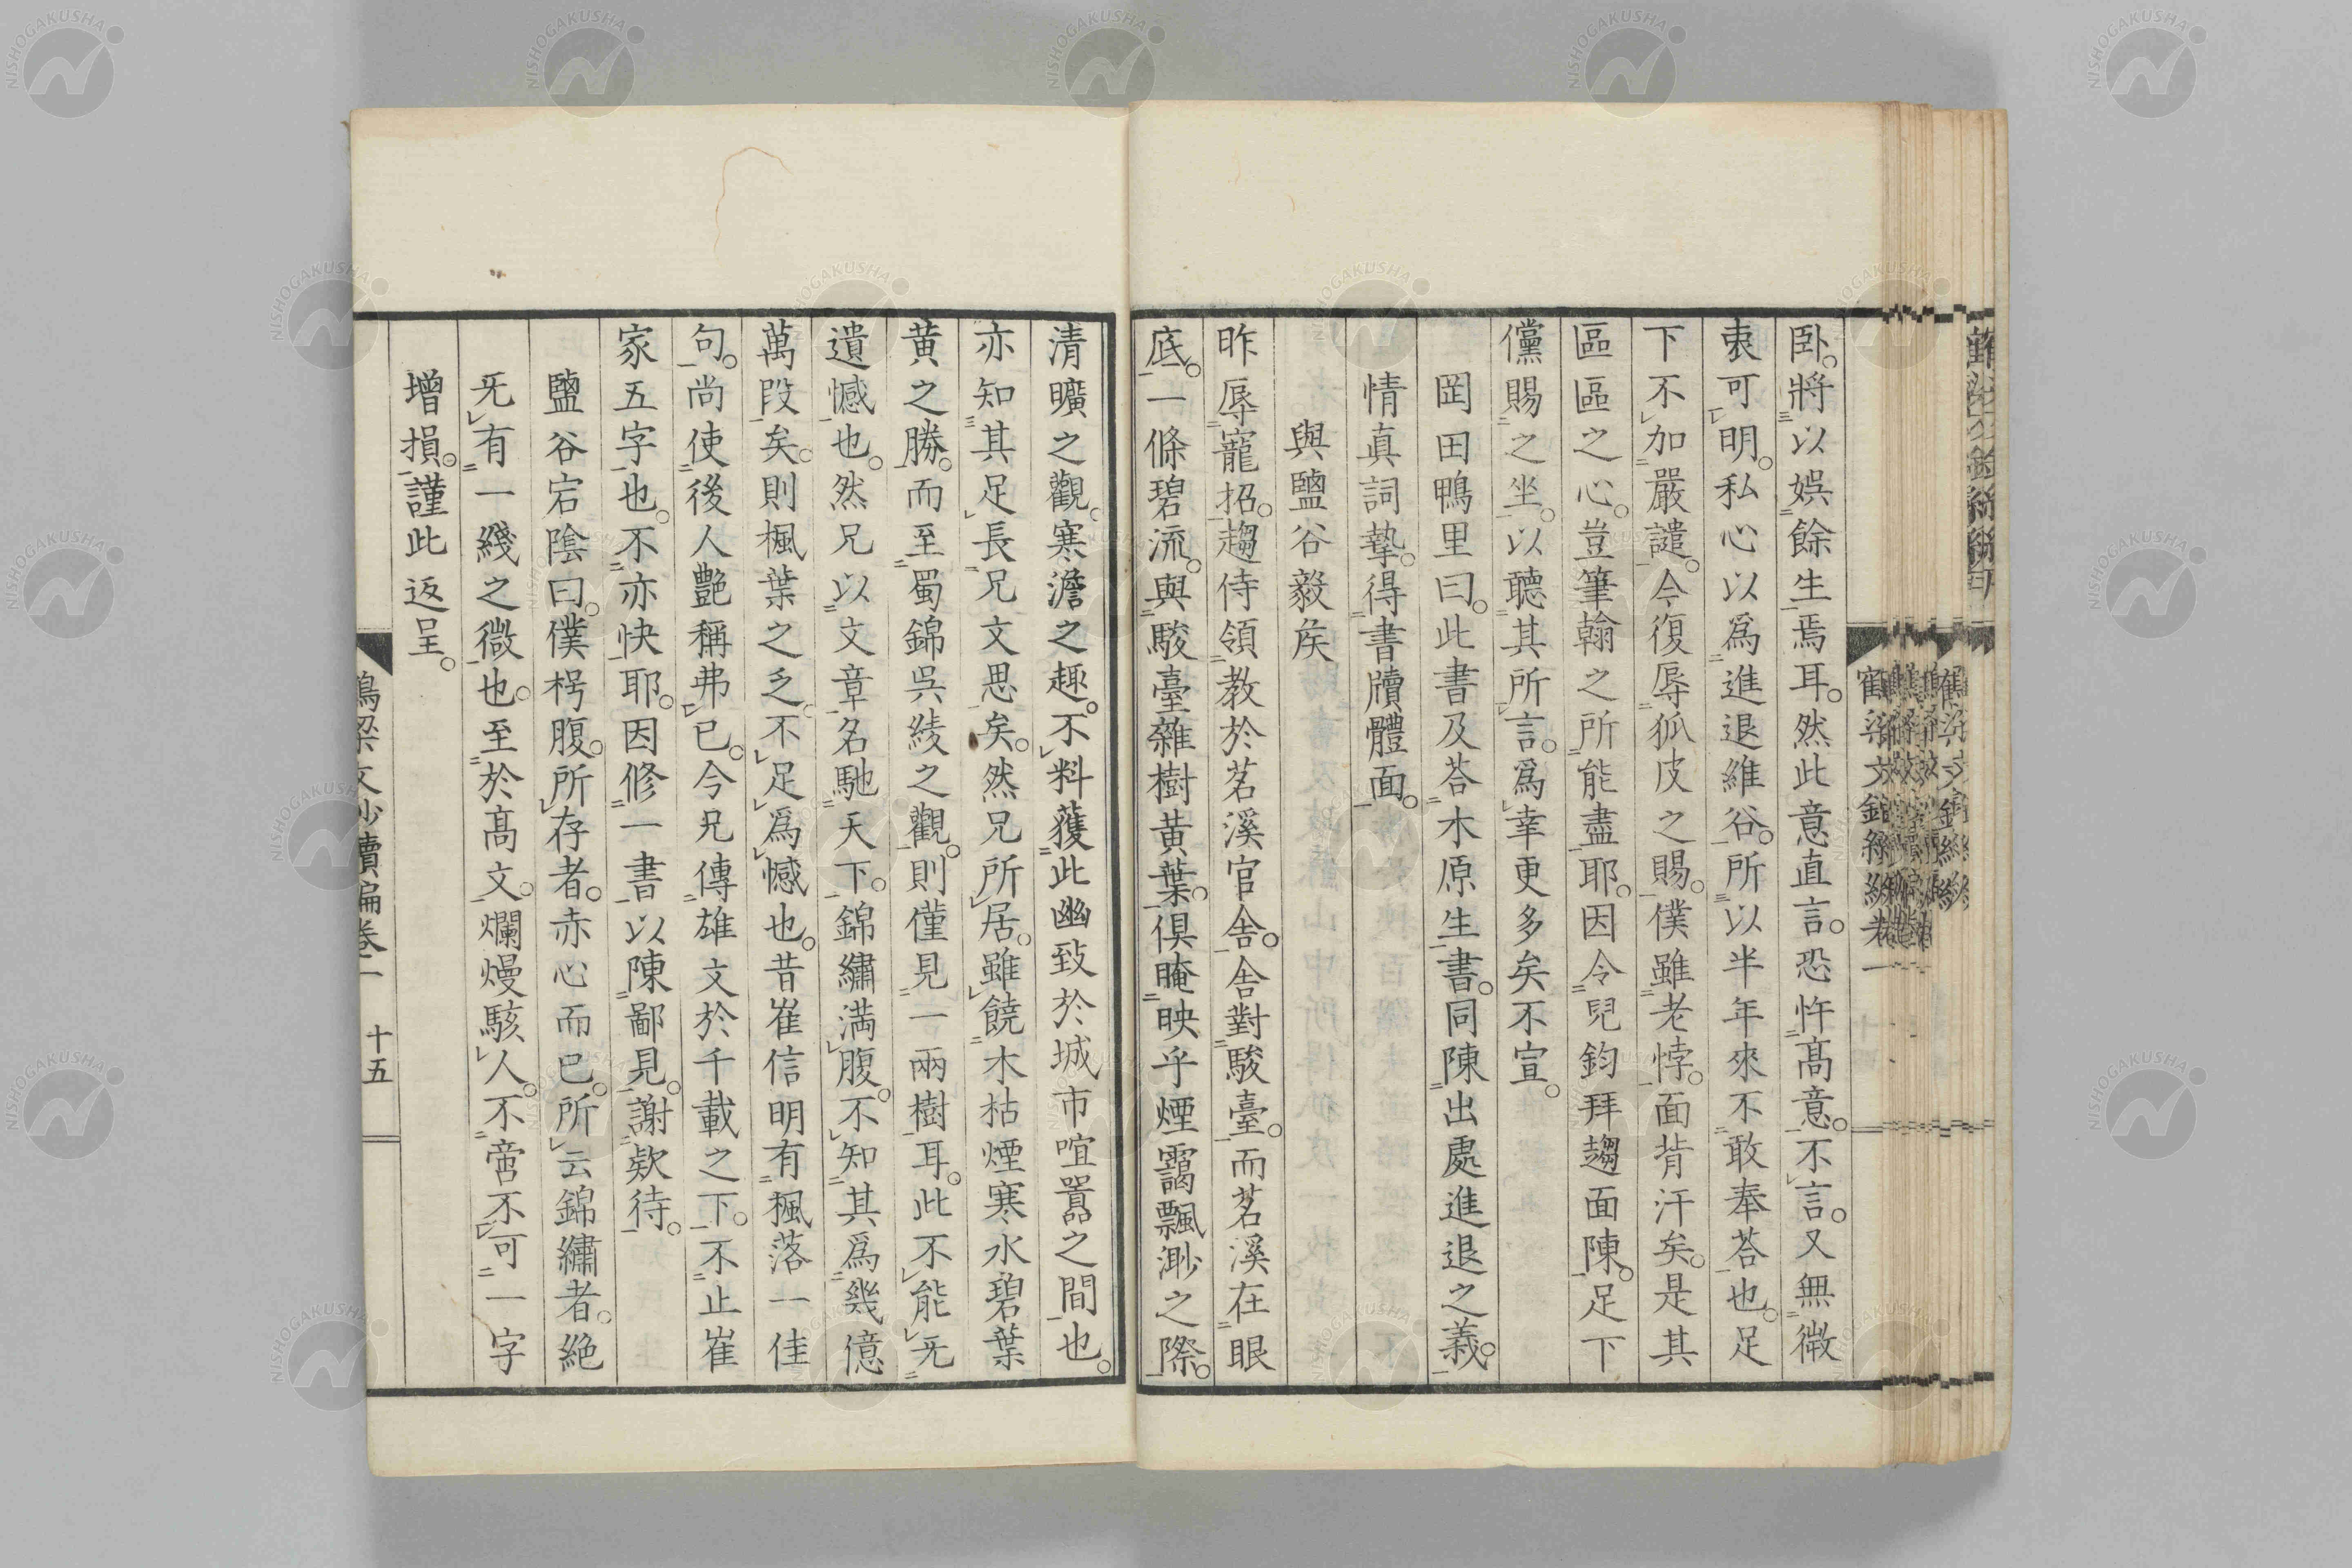 臥。將以娯餘生焉耳。然此意直言。恐忤髙意。不言。又無微
衷可明。私心以爲進退維谷。所以半年來不敢奉荅也。足
下不加嚴譴。今復辱狐皮之賜。僕雖老悖。面背汗矣。是其
區區之心。豈筆翰之所能盡耶。因令兒鈞拜趨面陳。足下
儻賜之坐。以聽其所言。爲幸更多矣不宣。
岡田鴨里曰。此書及荅木原生書。同陳出處進退之義。
情真詞摯。得書牘體面。
與鹽谷毅矦
昨辱寵招。趨侍領教於茗溪官舎。舎對駿臺。而茗溪在眼
底。一條碧流。與駿臺雜樹黄葉。倶晻映乎煙靄飄渺之際。
清曠之觀。寒澹之趣。不料獲此幽致於城市喧囂之間也。
亦知其足長兄文思矣。然兄所居。雖饒木枯煙寒水碧葉
黄之勝。而至蜀錦呉綾之觀。則僅見一兩樹耳。此不能无
遺憾也。然兄以文章名馳天下。錦繡満腹。不知其爲幾億
萬段矣。則楓葉之乏。不足爲憾也。昔崔信明有楓落一佳
句。尚使後人艷稱弗已。今兄傳雄文於千載之下。不止崔
家五字也。不亦快耶。因修一書。以陳鄙見。謝欵待。
鹽谷宕陰曰。僕枵腹。所存者。赤心而已。所云錦繡者。絶
无有一綫之微也。至於髙文。爛熳駭人。不啻不可一字
增損。謹此返呈。
文鈔續編卷一 十五